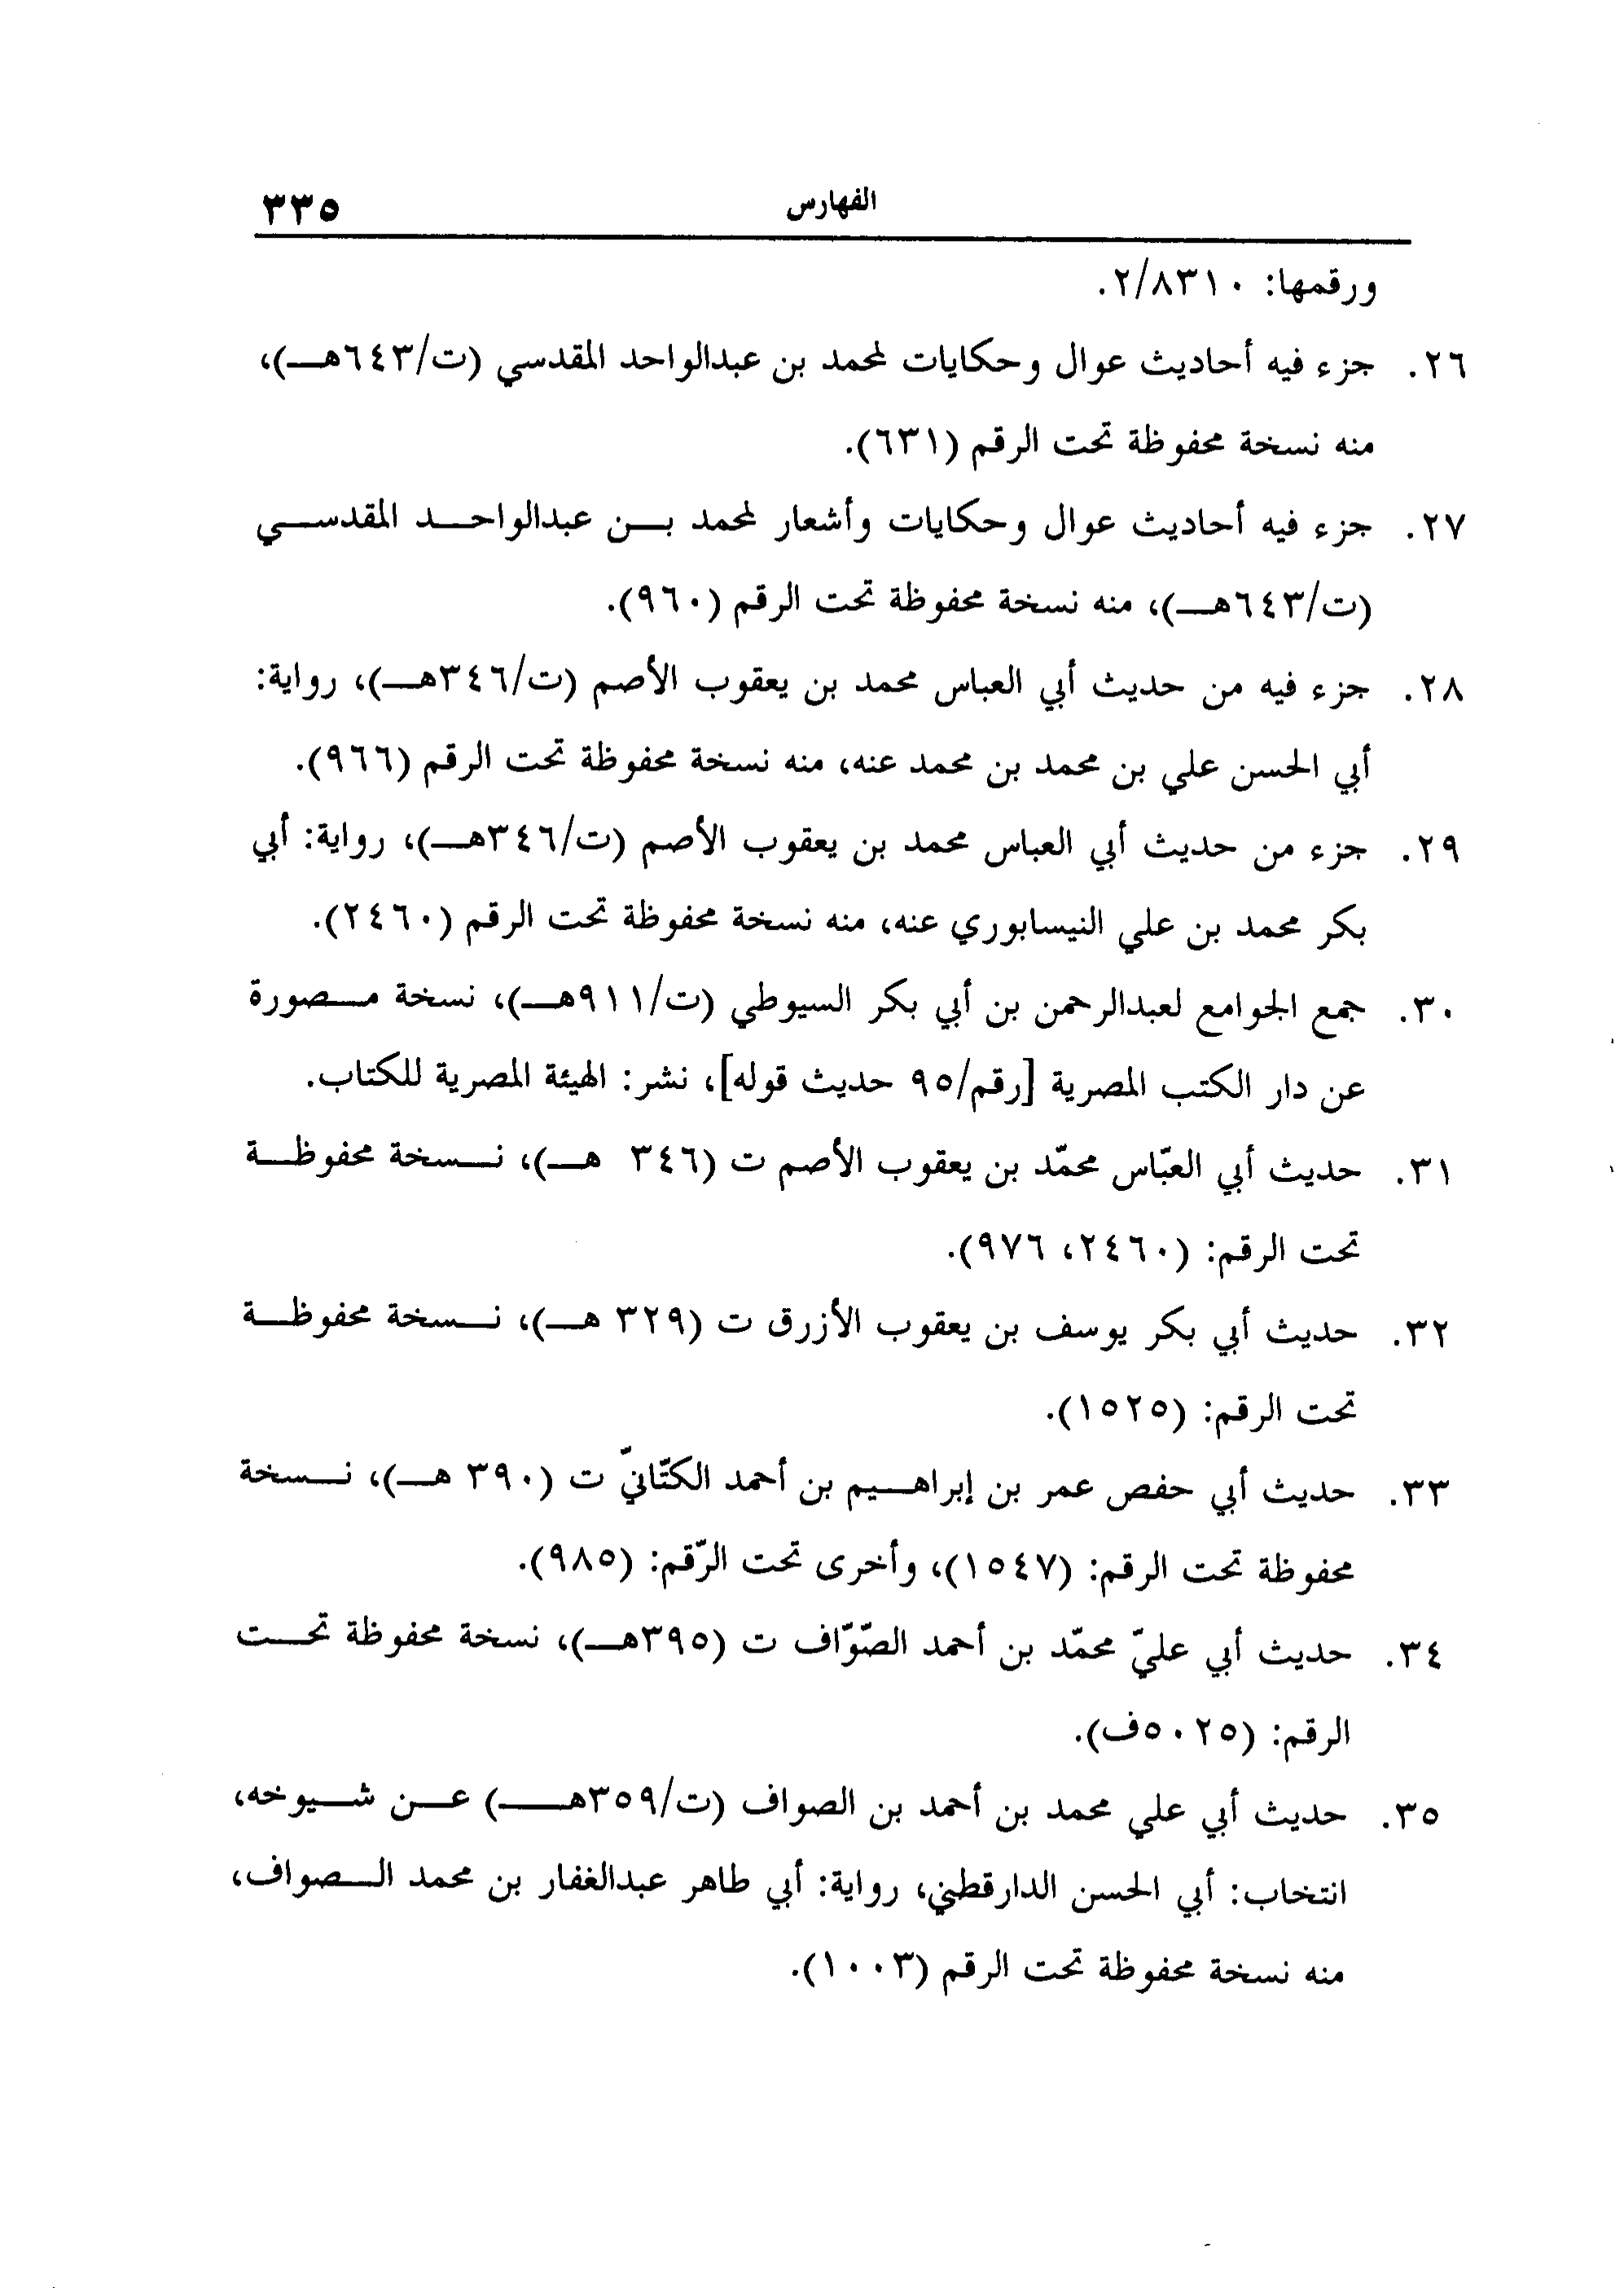 الفهارس ٣٣٥
ورقمها: ٢/٨٣١٠.
٢٦. جزء فيه أحاديث عوال وحكايات لمحمد بن عبدالواحد المقدسي (ت/٦٤٣هـ)،
منه نسخة محفوظة تحت الرقم (٦٣١).
٢٧. جزء فيه أحاديث عوال وحكايات وأشعار لمحمد بن عبدالواحد المقدسي
(ت/٦٤٣هـ)، منه نسخة محفوظة تحت الرقم (٩٦٠).
٢٨. جزء فيه من حديث أبي العباس محمد بن يعقوب الأصم (ت/٣٤٦هـ)، رواية:
أبي الحسن علي بن محمد بن محمد عنه، منه نسخة محفوظة تحت الرقم (٩٦٦).
٢٩. جزء من حديث أبي العباس محمد بن يعقوب الأصم (ت/٣٤٦هـ)، رواية: أبي
بكر محمد بن علي النيسابوري عنه، منه نسخة محفوظة تحت الرقم (٢٤٦٠).
٣٠. جمع الجوامع لعبدالرحمن بن أبي بكر السيوطي (ت/٩١١هـ)، نسخة مصورة
عن دار الكتب المصرية [رقم/٩٥ حديث قوله]، نشر: الهيئة المصرية للكتاب.
٣١. حديث أبي العبّاس محمّد بن يعقوب الأصم ت (٣٤٦ هـ)، نسخة محفوظة
تحت الرقم: (٢٤٦٠، ٩٧٦).
٣٢. حديث أبي بكر يوسف بن يعقوب الأزرق ت (٣٢٩ هـ)، نسخة محفوظة
تحت الرقم: (١٥٢٥).
٣٣. حديث أبي حفص عمر بن إبراهيم بن أحمد الكتّانيّ ت (٣٩٠ هـ)، نسخة
محفوظة تحت الرقم: (١٥٤٧)، وأخرى تحت الرّقم: (٩٨٥).
٣٤. حديث أبي عليّ محمّد بن أحمد الصّوّاف ت (٣٩٥هـ)، نسخة محفوظة تحت
الرقم: (٥٠٢٥ف).
٣٥. حديث أبي علي محمد بن أحمد بن الصواف (ت/٣٥٩هـ) عن شيوخه،
انتخاب: أبي الحسن الدارقطني، رواية: أبي طاهر عبدالغفار بن محمد الصواف،
منه نسخة محفوظة تحت الرقم (١٠٠٣).